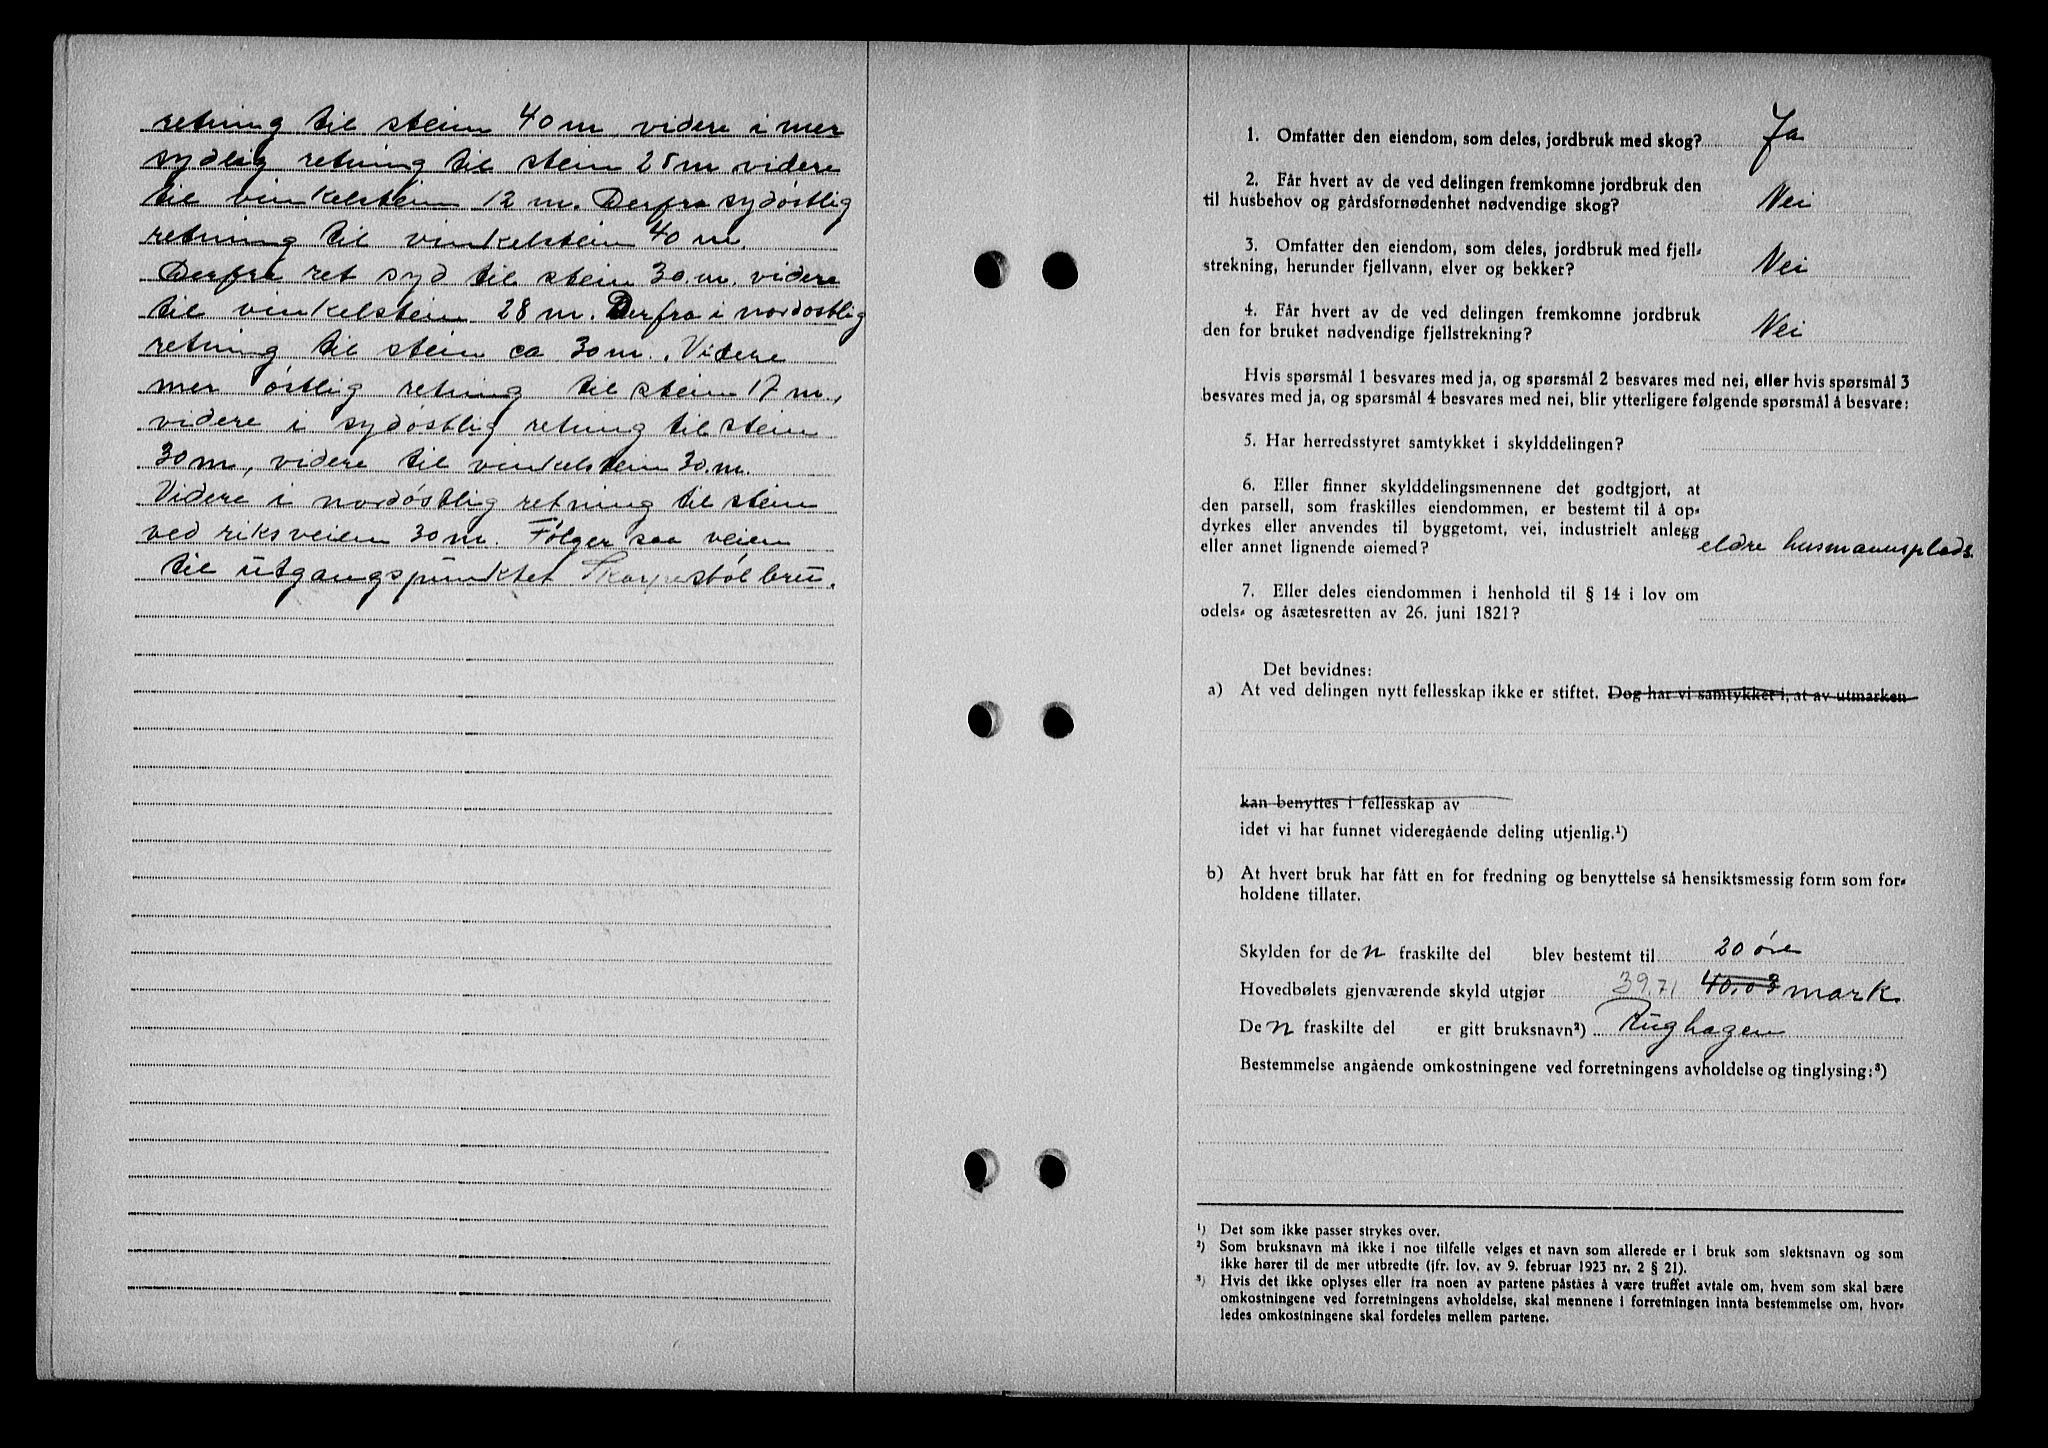 retning til stein 40 m videre i mer
sydlig retning til stein 25 m videre
til vinkelstein 12 m. Derfra sydöstlig
retning til vinkelstein 40 m.
Derfra ret syd til stein 30.m. videre
til vinkelstein 28 m. Derfra i nordostlig
retning til stein ca 30 m. Videre
mer östlig retning til stein 17 m.,
videre i sydöstlig retning til stein
30 m, videre til vinkelstein 30.m.
Videre i nordöstlig retning til stein
ved riksveien 30 m. Fölger saa veien
til utgangspunktet bru.
1. Omfatter den eiendom, som deles, jordbruk med skog? Ja
2. Får hvert av de ved delingen fremkomne jordbruk den
til husbehov og gårdsfornødenhet nødvendige skog? Nei
3. Omfatter den eiendom, som deles, jordbruk med fjell-
strekning, herunder fjellvann, elver og bekker? Nei
4. Får hvert av de ved delingen fremkomne jordbruk
den for bruket nødvendige fjellstrekning? Nei
Hvis spørsmål 1 besvares med ja, og spørsmål 2 besvares med nei, eller hvis spørsmål 3
besvares med ja, og spørsmål 4 besvares med nei, blir ytterligere følgende spørsmål å besvare:
5. Har herredsstyret samtykket i skylddelingen?
6. Eller finner skylddelingsmennene det godtgjort, at
den parsell, som fraskilles eiendommen, er bestemt til å op-
dyrkes eller anvendes til byggetomt, vei, industrielt anlegg
eller annet lignende øiemed? eldre husmannsplads.
7. Eller deles eiendommen i henhold til § 14 i lov om
odels- og åsætesretten av 26. juni 1821?
Det bevidnes:
a) At ved delingen nytt fellesskap ikke er stiftet. Dog har vi samtykket i, at av utmarken
kan benyttes i fellesskap av
idet vi har funnet videregående deling utjenlig.¹)
b) At hvert bruk har fått en for fredning og benyttelse så hensiktsmessig form som for-
holdene tillater.
Skylden for den fraskilte del blev bestemt til 20 öre
Hovedbølets gjenværende skyld utgjør 39,71 40,03 mark
Den fraskilte del er gitt bruksnavn²) Rughagen
Bestemmelse angående omkostningene ved forretningens avholdelse og tinglysing:³)
¹) Det som ikke passer strykes over.
²) Som bruksnavn må ikke i noe tilfelle velges et navn som allerede er i bruk som slektsnavn og som
ikke hører til de mer utbredte (jfr. lov. av 9. februar 1923 nr. 2 § 21).
³) Hvis det ikke oplyses eller fra noen av partene påståes å være truffet avtale om, hvem som skal bære
omkostningene ved forretningens avholdelse, skal mennene i forretningen innta bestemmelse om, hvor-
ledes omkostningene skal fordeles mellem partene.